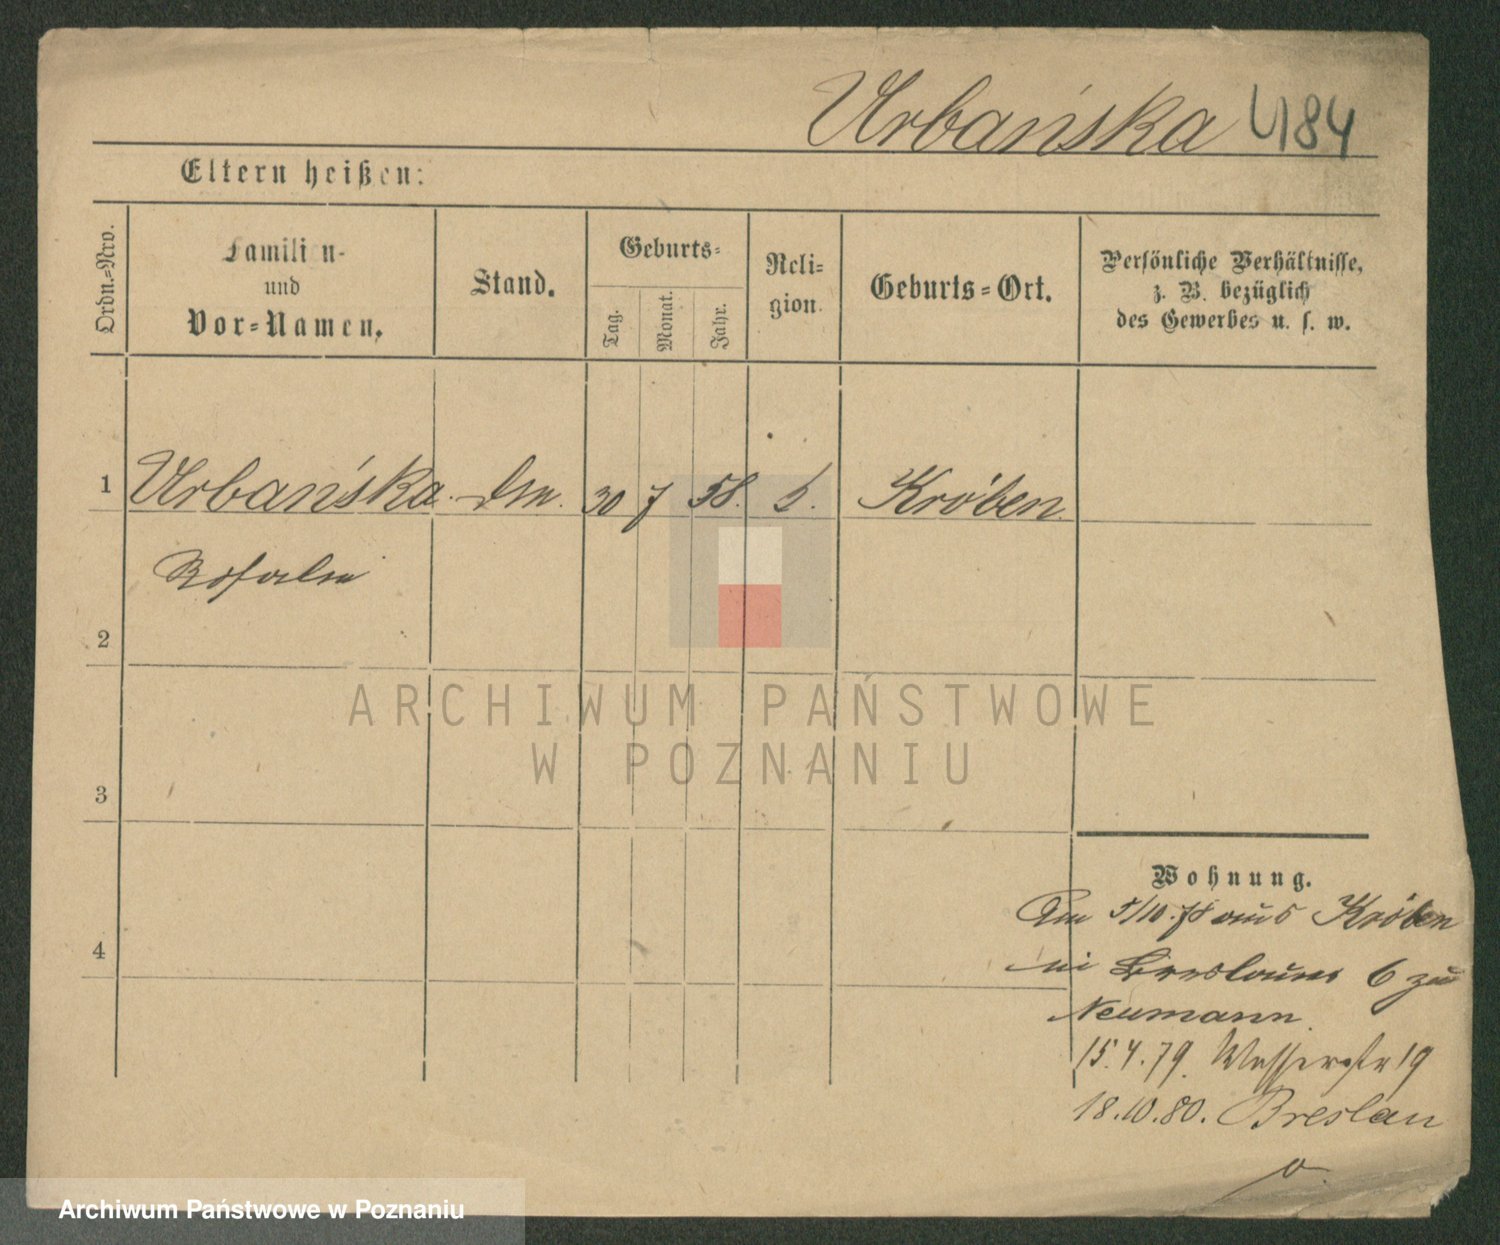 Urbańska 484
Eltern heißen:
Ordn.-Nro.
Familien-
und
Vor-Namen.
Stand.
Geburts-
Tag.
Monat.
Jahr.
Reli-
gion.
Geburts-Ort.
Persönliche Verhältnisse,
z. B. bezüglich
des Gewerbes u. s. w.
1 Urbańska 30 7 58. Kröben
Rosalie
2
3
4
Wohnung.
Am 5/10.78 aus Kröben
6 zu
Neumann.
15.4.79. Wasserstr 19
18.10.80. Breslau
ARCHIWUM PAŃSTWOWE
W POZNANIU
Archiwum Państwowe w Poznaniu